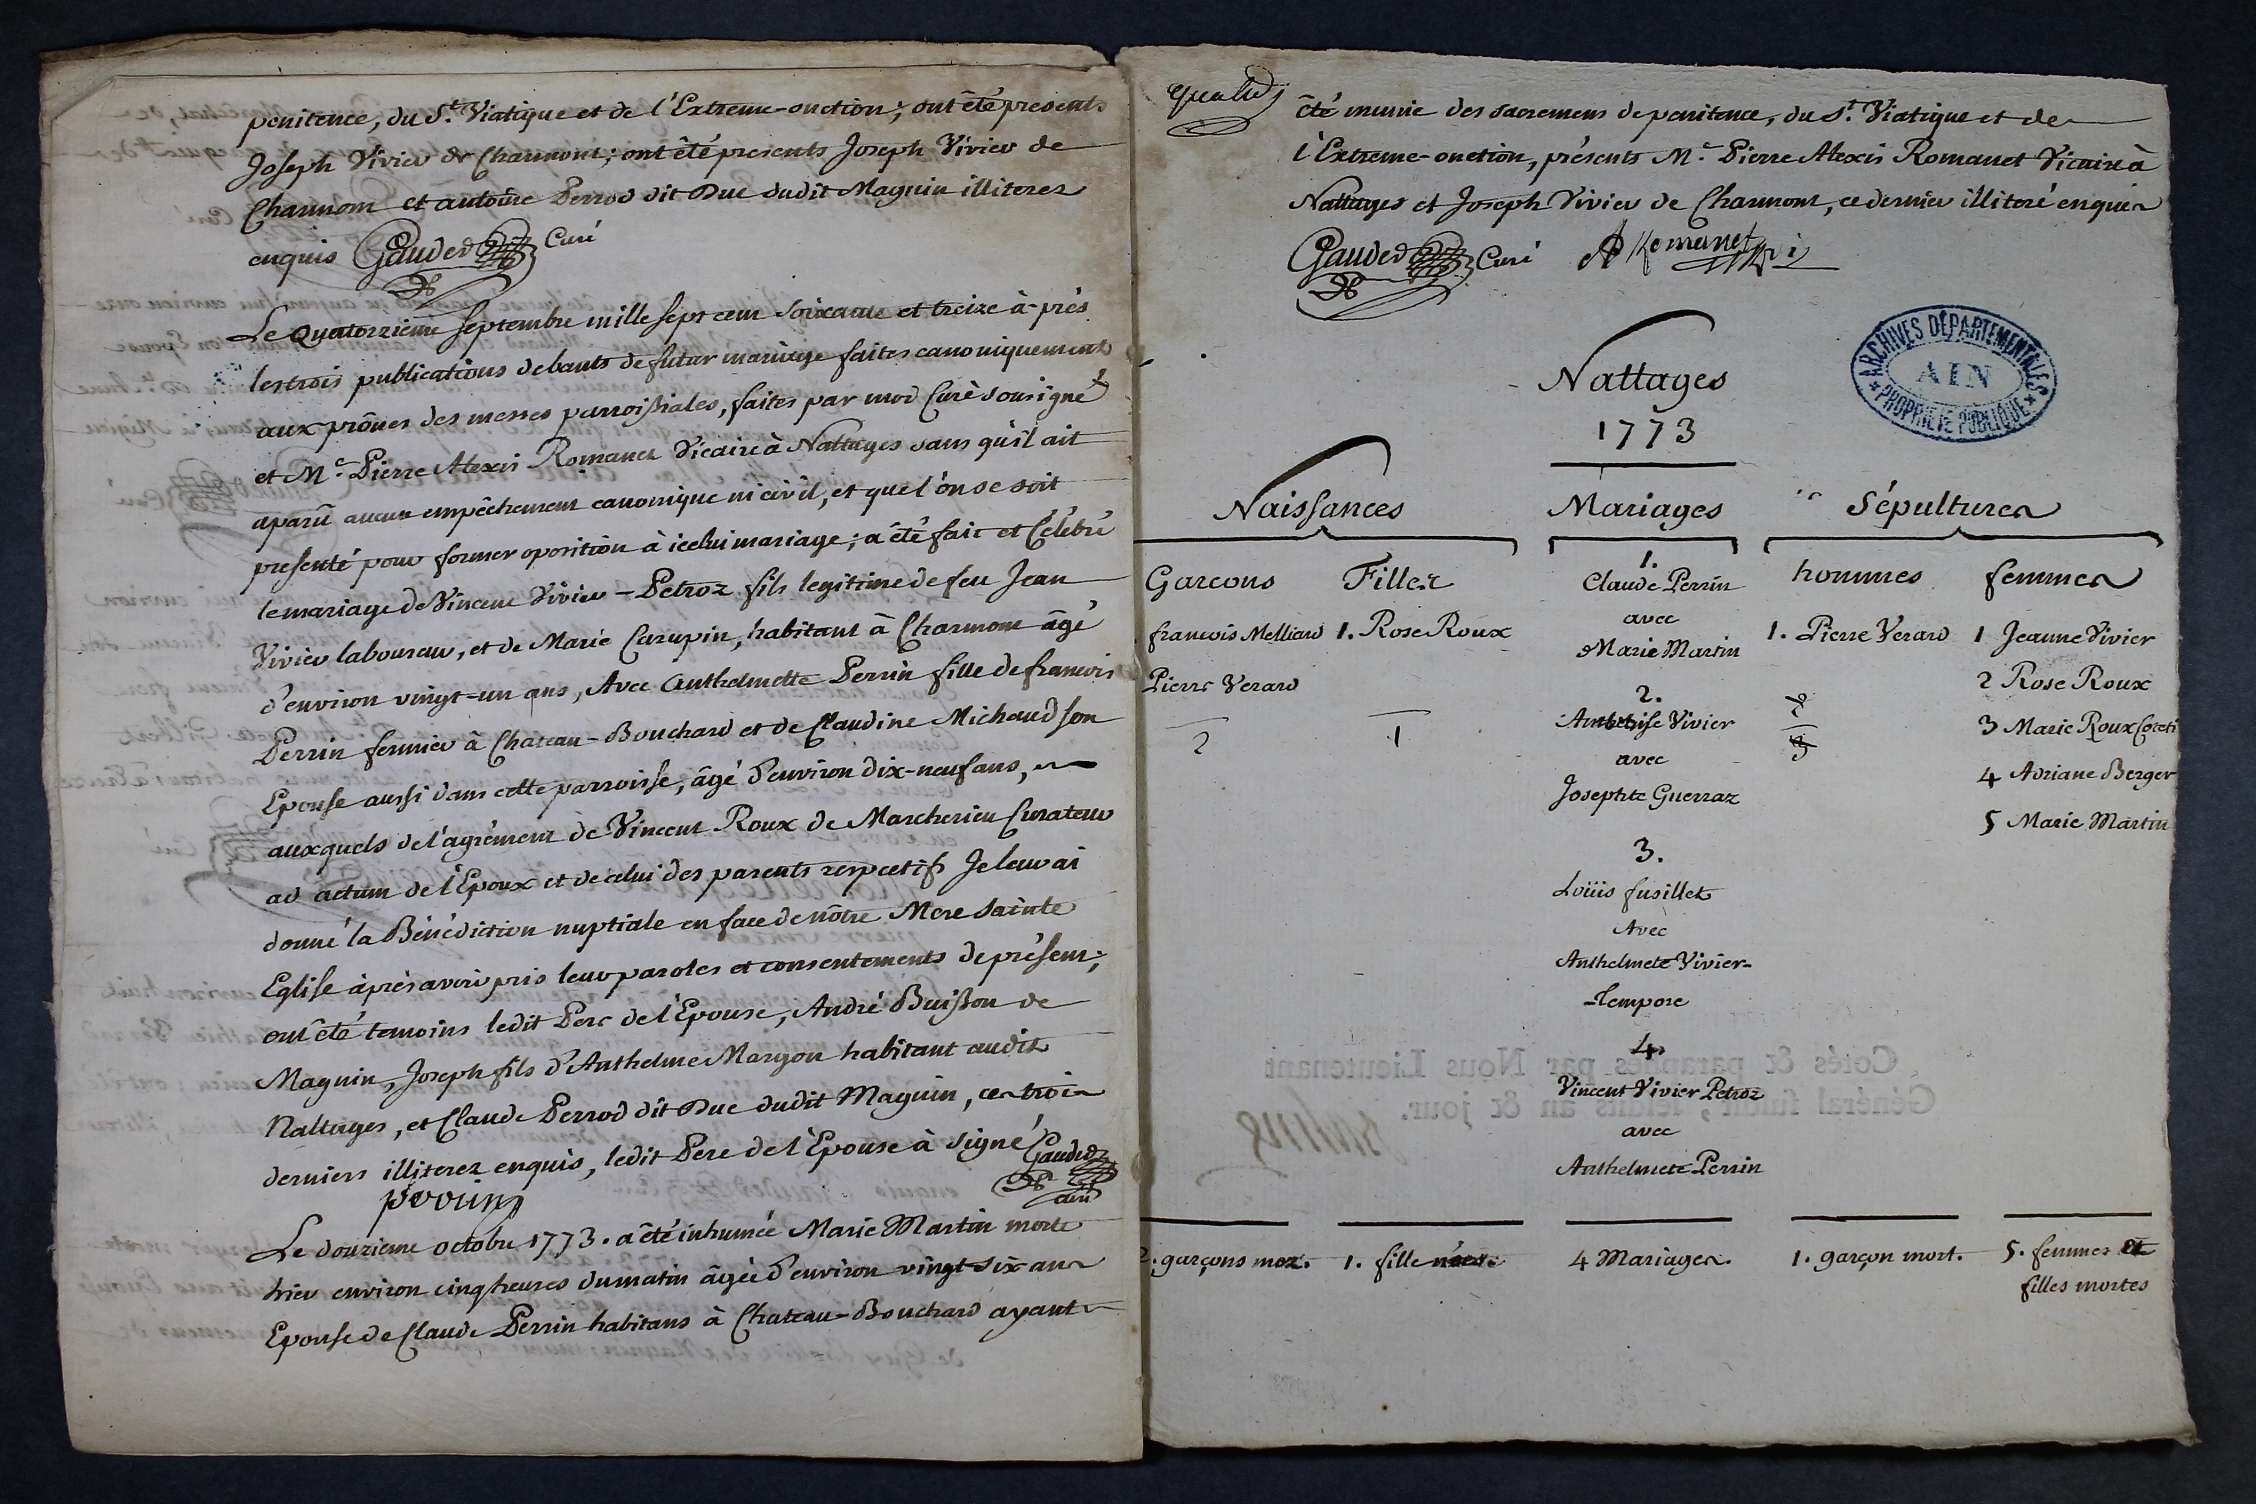 penitence, du St. Viatique et de l'Extreme-onction; ont êté presents
Joseph Vivier de Charmont; ont êté presents Joseph Vivier de
Charmom et antoine Perrod dit Duc dudit Magnin illiterez
enquis Gauded Curé
Le quatorzieme septembre mille sept cent soixante et treize à-près
les trois publications de bants de futur mariage faites canoniquement
aux prônes des messes parroissiales, faites par moi Curé sousigné
et Me. Pierre Alexis Romanet Vicaire à Nattages sans qu'il ait
aparû aucun empêchement canonique ni civil, et que l'on se soit
presenté pour former oposition à icelui mariage; a êté fait et Célébré
le mariage de Vincent Vivier-Petroz fils legitime de feu Jean
Vivier laboureur, et de Marie Carupin, habitant à Charmont âgé
d'environ vingt-un ans, Avec Anthelmette Perrin fille de francois
Perrin fermier à Chateau-Bouchard et de Claudine Michaud son
Epouse aussi dans cette parroisse, âgé d'environ dix-neuf ans,
auxquels de l'agrément de Vincent Roux de Marcherieu Curateur
ad actum de l'Epoux et de celui des parents respectifs Je leur ai
donné la Bénédiction nuptiale en face de nôtre Mere Sainte
Eglise àprès avoir pris leur paroles et consentements de présent;
ont êté temoins ledit Pere de l'Epouse, André Buisson de
Magnin, Joseph fils d'Anthelme Margon habitant audit
Nattages, et Claude Perrod dit Duc dudit Magnin, ces trois
derniers illiterez enquis, ledit Pere de l'Epouse à signé Gauded
perrin Curé
Le douzieme octobre 1773. a êté inhumée Marie Martin morte
hier environ cinq heures du matin âgée d'environ vingt-six ans
Epouse de Claude Perrin habitans à Chateau-Bouchard ayant
êté munie des sacremens de penitence, du St. Viatique et de
l'Extreme-onction, présents Me. Pierre Alexis Romanet Vicaire à
Nattages et Joseph Vivier de Charmont, ce dernier illiteré enquis
Gauded Curé Romanet
ARCHIVES DÉPARTEMENTALES
AIN
PROPRIÉTÉ PUBLIQUE
Nattages
1773
Naissances Mariages Sépultures
Garcons Filles 1. hommes femmes
Claude Perrin
avec
Marie Martin
francois Melliard 1. Rose Roux 1. Pierre Verard 1 Jeanne Vivier
Pierre Verard 2. 2 Rose Roux
Ambroise Vivier 3 Marie Roux
2 1
avec 4 Adriane Berger
Josephte Guerraz 5 Marie Martin
3.
Loüis fusillet
Avec
Anthelmete Vivier-
-Tempore
4
Vincent Vivier Petroz
avec
Anthelmete Perrin
2. garçons 1. fille née. 4 Mariages. 1. garçon mort. 5. femmes et
filles mortes
Cotés & paraphés par Nous Lieutenant
Général